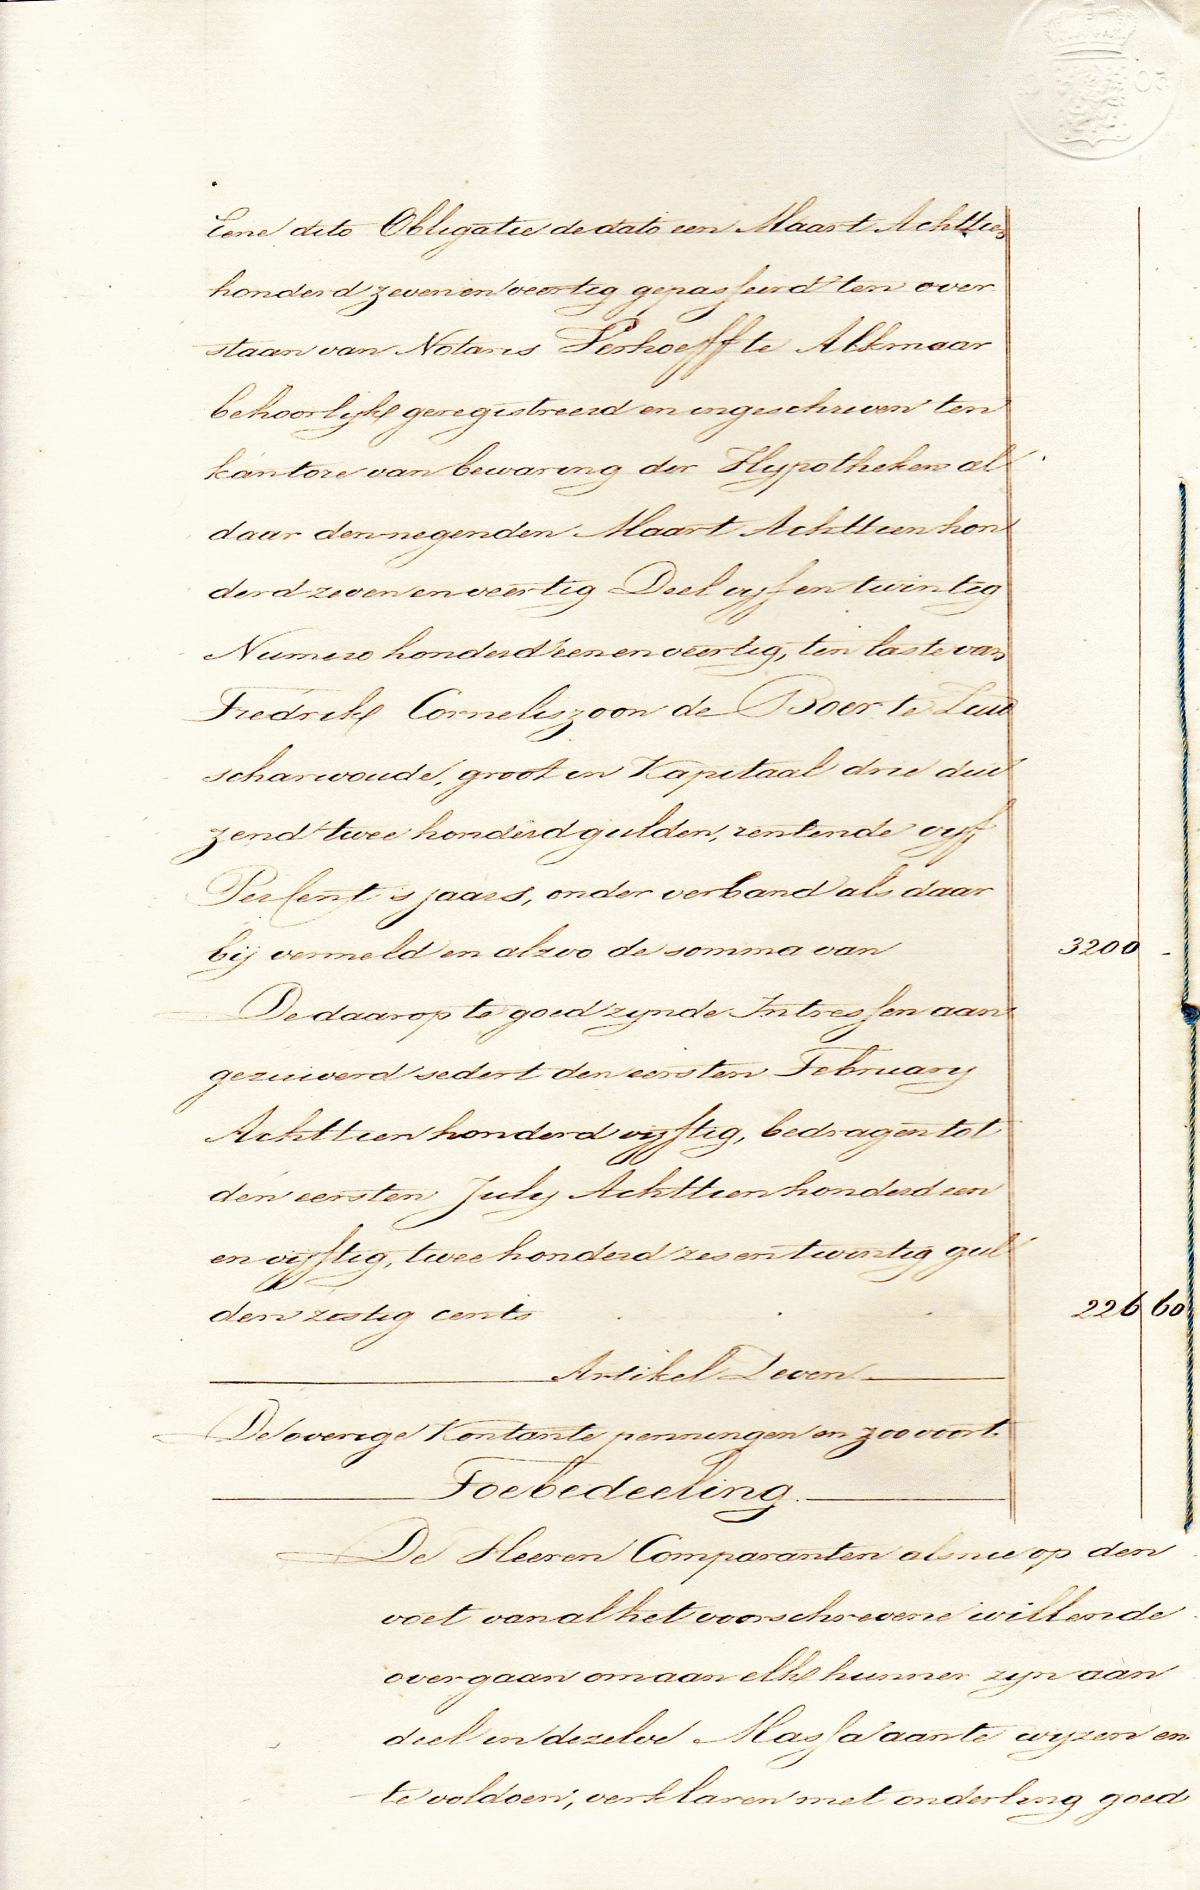 Eene dito Obligatie de dato een Maart Achttien
honderd zeven en veertig gepasseerd ten over
staan van Notaris Verhoeff te Alkmaar
behoorlijk geregistreerd en ingeschreven ten
kantore van bewaring der Hypotheken al
daar den negenden Maart Achttien hon
derd zeven en veertig Deel vyf en twintig
Numero honderd een en veertig, ten laste van
Fredrik Corneliszoon de Boer te Zuid
scharwoude, groot in Kapitaal drie dui
zend twee honderd gulden, rentende vyf
PerCent 's jaars, onder verband als daar
bij vermeld en alzoo de somma van 3200 -
De daarop te goed zynde Intressen aan
gezuiverd sedert den eersten February
Achttien honderd vyftig, bedragen tot
den eersten July Achttien honderd een
en vyftig, twee honderd zes en twintig gul
den zestig cents 226 60
Artikel Zeven
De overige Kontante penningen en zoo voort.
Toebedeeling.
De Heeren Comparanten als nu op den
voet van al het voorschrevene willende
overgaan om aan elk hunner zyn aan
deel in dezelve Massa aan te wyzen en
te voldoen, verklaren met onderling goed